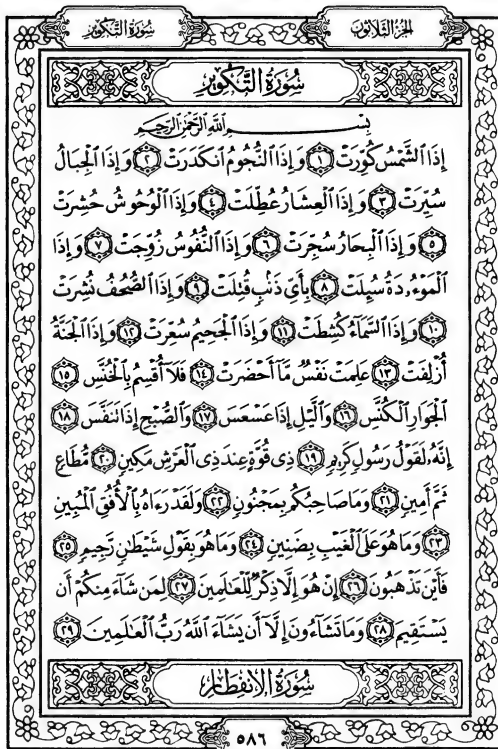 الجزء الثلاثون
سورة التكوير
سُورَةُ التَّكْوِيرِ
بِسْمِ اللَّهِ الرَّحْمَٰنِ الرَّحِيمِ
إِذَا الشَّمْسُ كُوِّرَتْ ١ وَإِذَا النُّجُومُ انكَدَرَتْ ٢ وَإِذَا الْجِبَالُ
سُيِّرَتْ ٣ وَإِذَا الْعِشَارُ عُطِّلَتْ ٤ وَإِذَا الْوُحُوشُ حُشِرَتْ
٥ وَإِذَا الْبِحَارُ سُجِّرَتْ ٦ وَإِذَا النُّفُوسُ زُوِّجَتْ ٧ وَإِذَا
الْمَوْءُۥدَةُ سُئِلَتْ ٨ بِأَيِّ ذَنۢبٍ قُتِلَتْ ٩ وَإِذَا الصُّحُفُ نُشِرَتْ
١٠ وَإِذَا السَّمَاءُ كُشِطَتْ ١١ وَإِذَا الْجَحِيمُ سُعِّرَتْ ١٢ وَإِذَا الْجَنَّةُ
أُزْلِفَتْ ١٣ عَلِمَتْ نَفْسٌ مَّا أَحْضَرَتْ ١٤ فَلَا أُقْسِمُ بِالْخُنَّسِ ١٥
الْجَوَارِ الْكُنَّسِ ١٦ وَالَّيْلِ إِذَا عَسْعَسَ ١٧ وَالصُّبْحِ إِذَا تَنَفَّسَ ١٨
إِنَّهُۥ لَقَوْلُ رَسُولٍ كَرِيمٍ ١٩ ذِى قُوَّةٍ عِندَ ذِى الْعَرْشِ مَكِينٍ ٢٠ مُّطَاعٍ
ثَمَّ أَمِينٍ ٢١ وَمَا صَاحِبُكُم بِمَجْنُونٍ ٢٢ وَلَقَدْ رَءَاهُ بِالْأُفُقِ الْمُبِينِ
٢٣ وَمَا هُوَ عَلَى الْغَيْبِ بِضَنِينٍ ٢٤ وَمَا هُوَ بِقَوْلِ شَيْطَٰنٍ رَّجِيمٍ ٢٥
فَأَيْنَ تَذْهَبُونَ ٢٦ إِنْ هُوَ إِلَّا ذِكْرٌ لِّلْعَٰلَمِينَ ٢٧ لِمَن شَاءَ مِنكُمْ أَن
يَسْتَقِيمَ ٢٨ وَمَا تَشَاءُونَ إِلَّا أَن يَشَاءَ اللَّهُ رَبُّ الْعَٰلَمِينَ ٢٩
سُورَةُ الِانفِطَارِ
٥٨٦